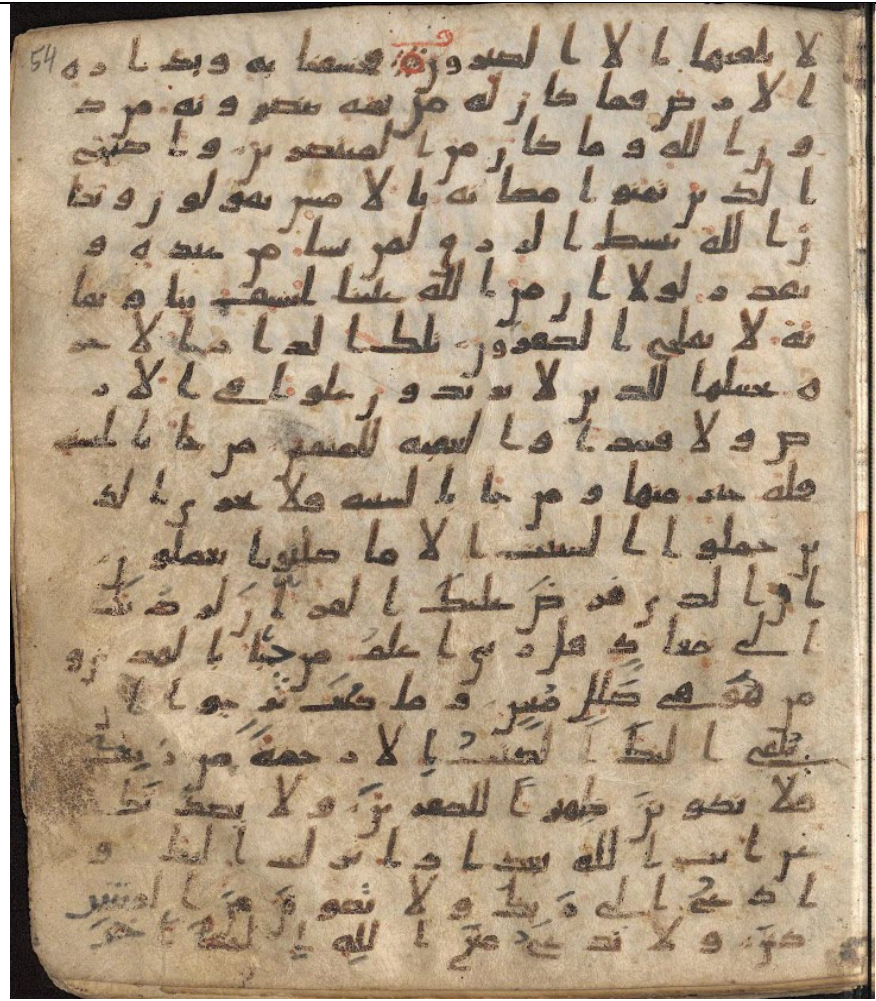 54
لا يلقيها الا الصبرون فخسفنا به وبداره
الارض فما كان له من فئه ينصرونه من د
ون الله وما كان من المنتصرين واصبح
الذين تمنوا مكانه بالامس يقولون ويكا
ن الله يبسط الرزق لمن يشا من عبده و
يقدر لولا ان من الله علينا لخسف بنا ويكا
نه لا يفلح الكفرون تلك الدار الاخر
ه نجعلها للذين لا يريدون علوا في الار
ض ولا فسدا والعقبه للمتقين من جا بالحسنه
فله خير منها ومن جا بالسيئه فلا يجزى الذ
ين عملوا السيت الا ما كانوا يعملون
ان الذي فرض عليك القران لرادك
الى معاد قل ربي اعلم من جا بالهدى و
من هو في ضلل مبين وما كنت ترجوا ان
يلقى اليك الكتب الا رحمه من ربك
فلا تكونن ظهيرا للكفرين ولا يصدنك
عن ايت الله بعد اذ انزلت اليك و
ادع الى ربك ولا تكونن من المشر
كين ولا تدع مع الله الها اخر